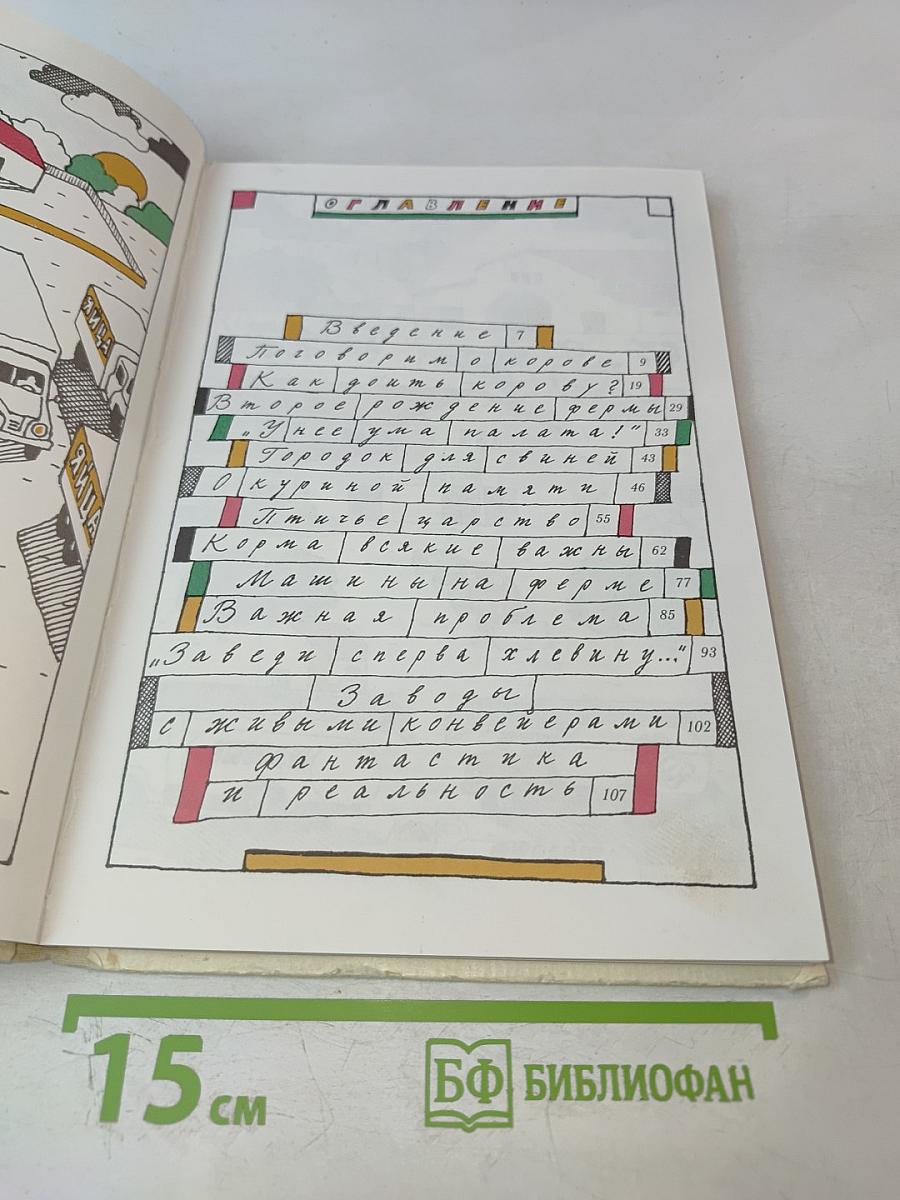 ОГЛАВЛЕНИЕ
Введение 7
Поговорим о корове 9
Как доить корову? 19
Второе рождение фермы 29
„У нее ума палата!" 33
Городок для свиней 43
О куриной памяти 46
Птичье царство 55
Корма всякие важны 62
Машины на ферме 77
Важная проблема 85
„Заведи сперва хлевину..." 93
Заводы
с живыми конвейерами 102
Фантастика
и реальность 107
ЯЙЦА
ЯЙЦА
15 см
БФ БИБЛИОФАН